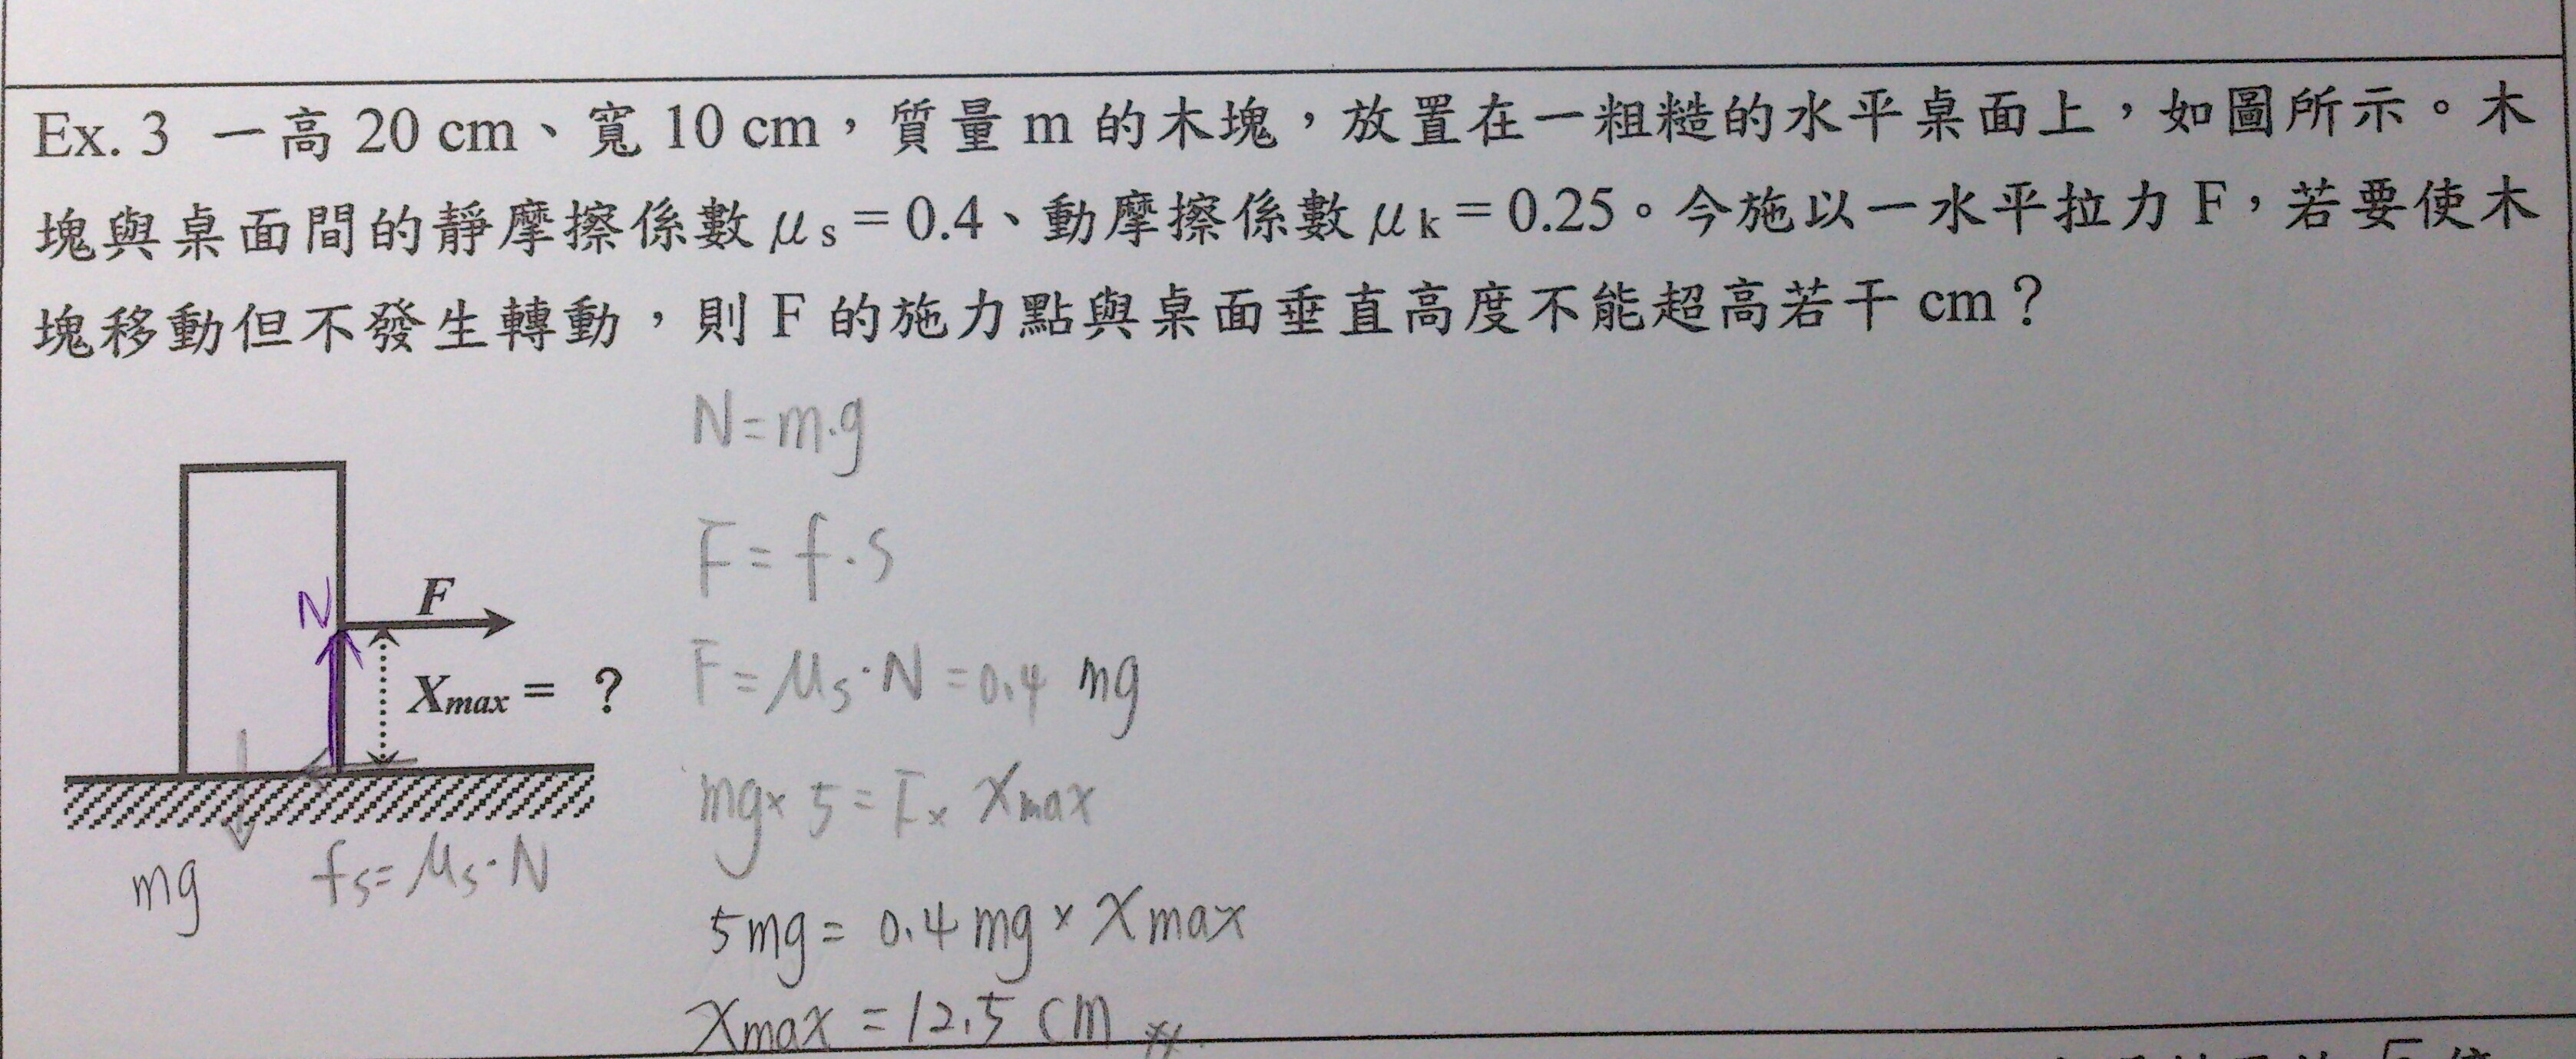 Ex. 3 一高 20 cm、寬 10 cm，質量 m 的木塊，放置在一粗糙的水平桌面上，如圖所示。木
塊與桌面間的靜摩擦係數 μs = 0.4、動摩擦係數 μk = 0.25。今施以一水平拉力 F，若要使木
塊移動但不發生轉動，則 F 的施力點與桌面垂直高度不能超高若干 cm？
N=m.g
F = f.s
N
F
F = μs·N = 0.4 mg
Xmax = ？
mg× 5 = F× Xmax
mg
fs= μs·N
5mg = 0.4 mg × Xmax
Xmax = 12.5 cm